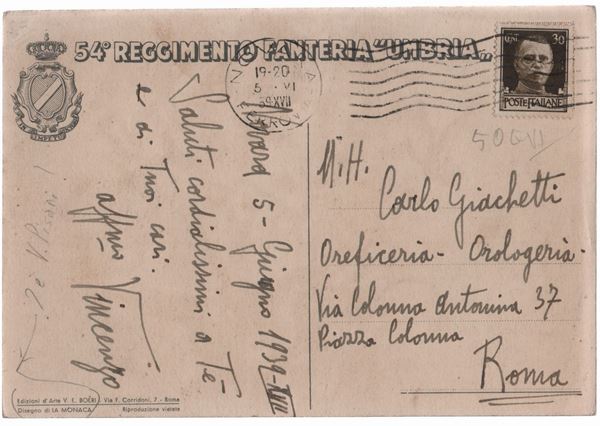 54º REGGIMENTO FANTERIA "UMBRIA"
CENT. 30
POSTE ITALIANE
19-20
5 VI
39 XVII
5 - Giugno 1939-XVII
Saluti cordialissimi a Te
e ai Tuoi cari.
affmo Vincenzo
Carlo Giachetti
Oreficeria - Orologeria -
Via Colonna Antonina 37
Piazza Colonna
Roma
Edizioni d'Arte V. E. BOERI - Via F. Corridoni, 7 - Roma
Disegno di LA MONACA Riproduzione vietata